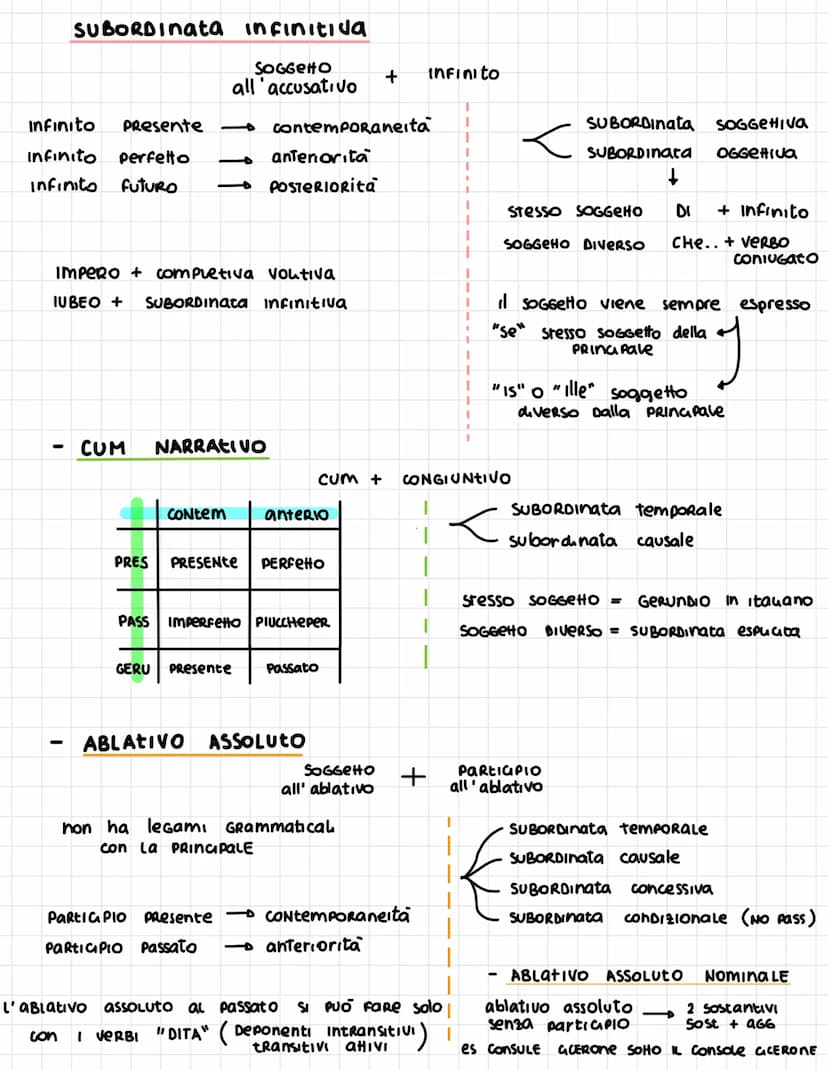 SUBORDINATA INFINITIVA
SOGGETTO + INFINITO
all'accusativo
INFINITO PRESENTE → CONTEMPORANEITÀ
INFINITO PERFETTO → ANTERIORITÀ
INFINITO FUTURO → POSTERIORITÀ
IMPERO + COMPLETIVA VOLITIVA
IUBEO + SUBORDINATA INFINITIVA
SUBORDINATA SOGGETTIVA
SUBORDINATA OGGETTIVA
↓
STESSO SOGGETTO DI + INFINITO
SOGGETTO DIVERSO CHE.. + VERBO
CONIUGATO
il SOGGETTO VIENE SEMPRE ESPRESSO
"SE" STESSO SOGGETTO DELLA
PRINCIPALE
"IS" O "ILLE" SOGGETTO
DIVERSO DALLA PRINCIPALE
- CUM NARRATIVO
CUM + CONGIUNTIVO
CONTEM ANTERIO
PRES PRESENTE PERFETTO
PASS IMPERFETTO PIUCCHEPER
GERU PRESENTE PASSATO
SUBORDINATA TEMPORALE
SUBORDINATA CAUSALE
STESSO SOGGETTO = GERUNDIO IN ITALIANO
SOGGETTO DIVERSO = SUBORDINATA ESPLICITA
- ABLATIVO ASSOLUTO
SOGGETTO + PARTICIPIO
all'ablativo all'ablativo
non ha legami GRAMMATICAL
con LA PRINCIPALE
PARTICIPIO PRESENTE → CONTEMPORANEITÀ
PARTICIPIO PASSATO → ANTERIORITÀ
L'ABLATIVO ASSOLUTO AL PASSATO SI PUÒ FARE SOLO
CON I VERBI "DITA" (DEPONENTI INTRANSITIVI
TRANSITIVI ATTIVI)
SUBORDINATA TEMPORALE
SUBORDINATA CAUSALE
SUBORDINATA CONCESSIVA
SUBORDINATA CONDIZIONALE (NO PASS)
- ABLATIVO ASSOLUTO NOMINALE
ablativo assoluto → 2 SOSTANTIVI
senza PARTICIPIO SOST + AGG
ES CONSULE CICERONE SOTTO IL CONSOLE CICERONE